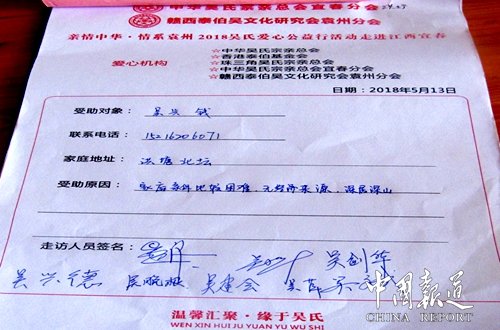 中华吴氏宗亲总会宜春分会
赣西泰伯吴文化研究会袁州分会
亲情中华·情系袁州 2018吴氏爱心公益行活动走进江西宜春
爱心机构
☆中华吴氏宗亲总会
☆香港泰伯基金会
☆珠三角吴氏宗亲总会
☆中华吴氏宗亲总会宜春分会
☆赣西泰伯吴文化研究会袁州分会
日期：2018年5月13日
受助对象：吴兴钱
联系电话：15216206071
家庭地址：洪塘北坛
受助原因：家庭条件比较困难，无经济来源，深居深山
走访人员签名：
吴剑华
吴兴德
中国报道
CHINA REPORT
温馨汇聚·缘于吴氏
WEN XIN HUI JU YUAN YU WU SHI